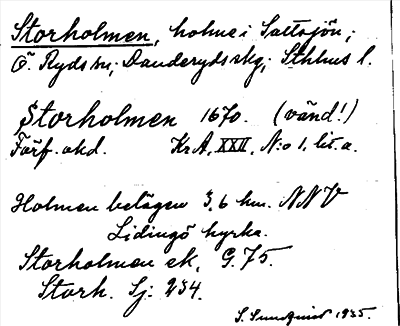 Storholmen, holme i Saltsjön;
Ö. Ryds sn; Danderyds skg; Sthlms l.
Storholmen 1670. (vänd!)
Förf. okd. KrA, XXII, N:o 1, lit. a.
Holmen belägen 3,6 km. NNV
Lidingö kyrka.
Storholmen ek. G. 75.
Storh. Sj: 234.
S. Sundqvist 1935.